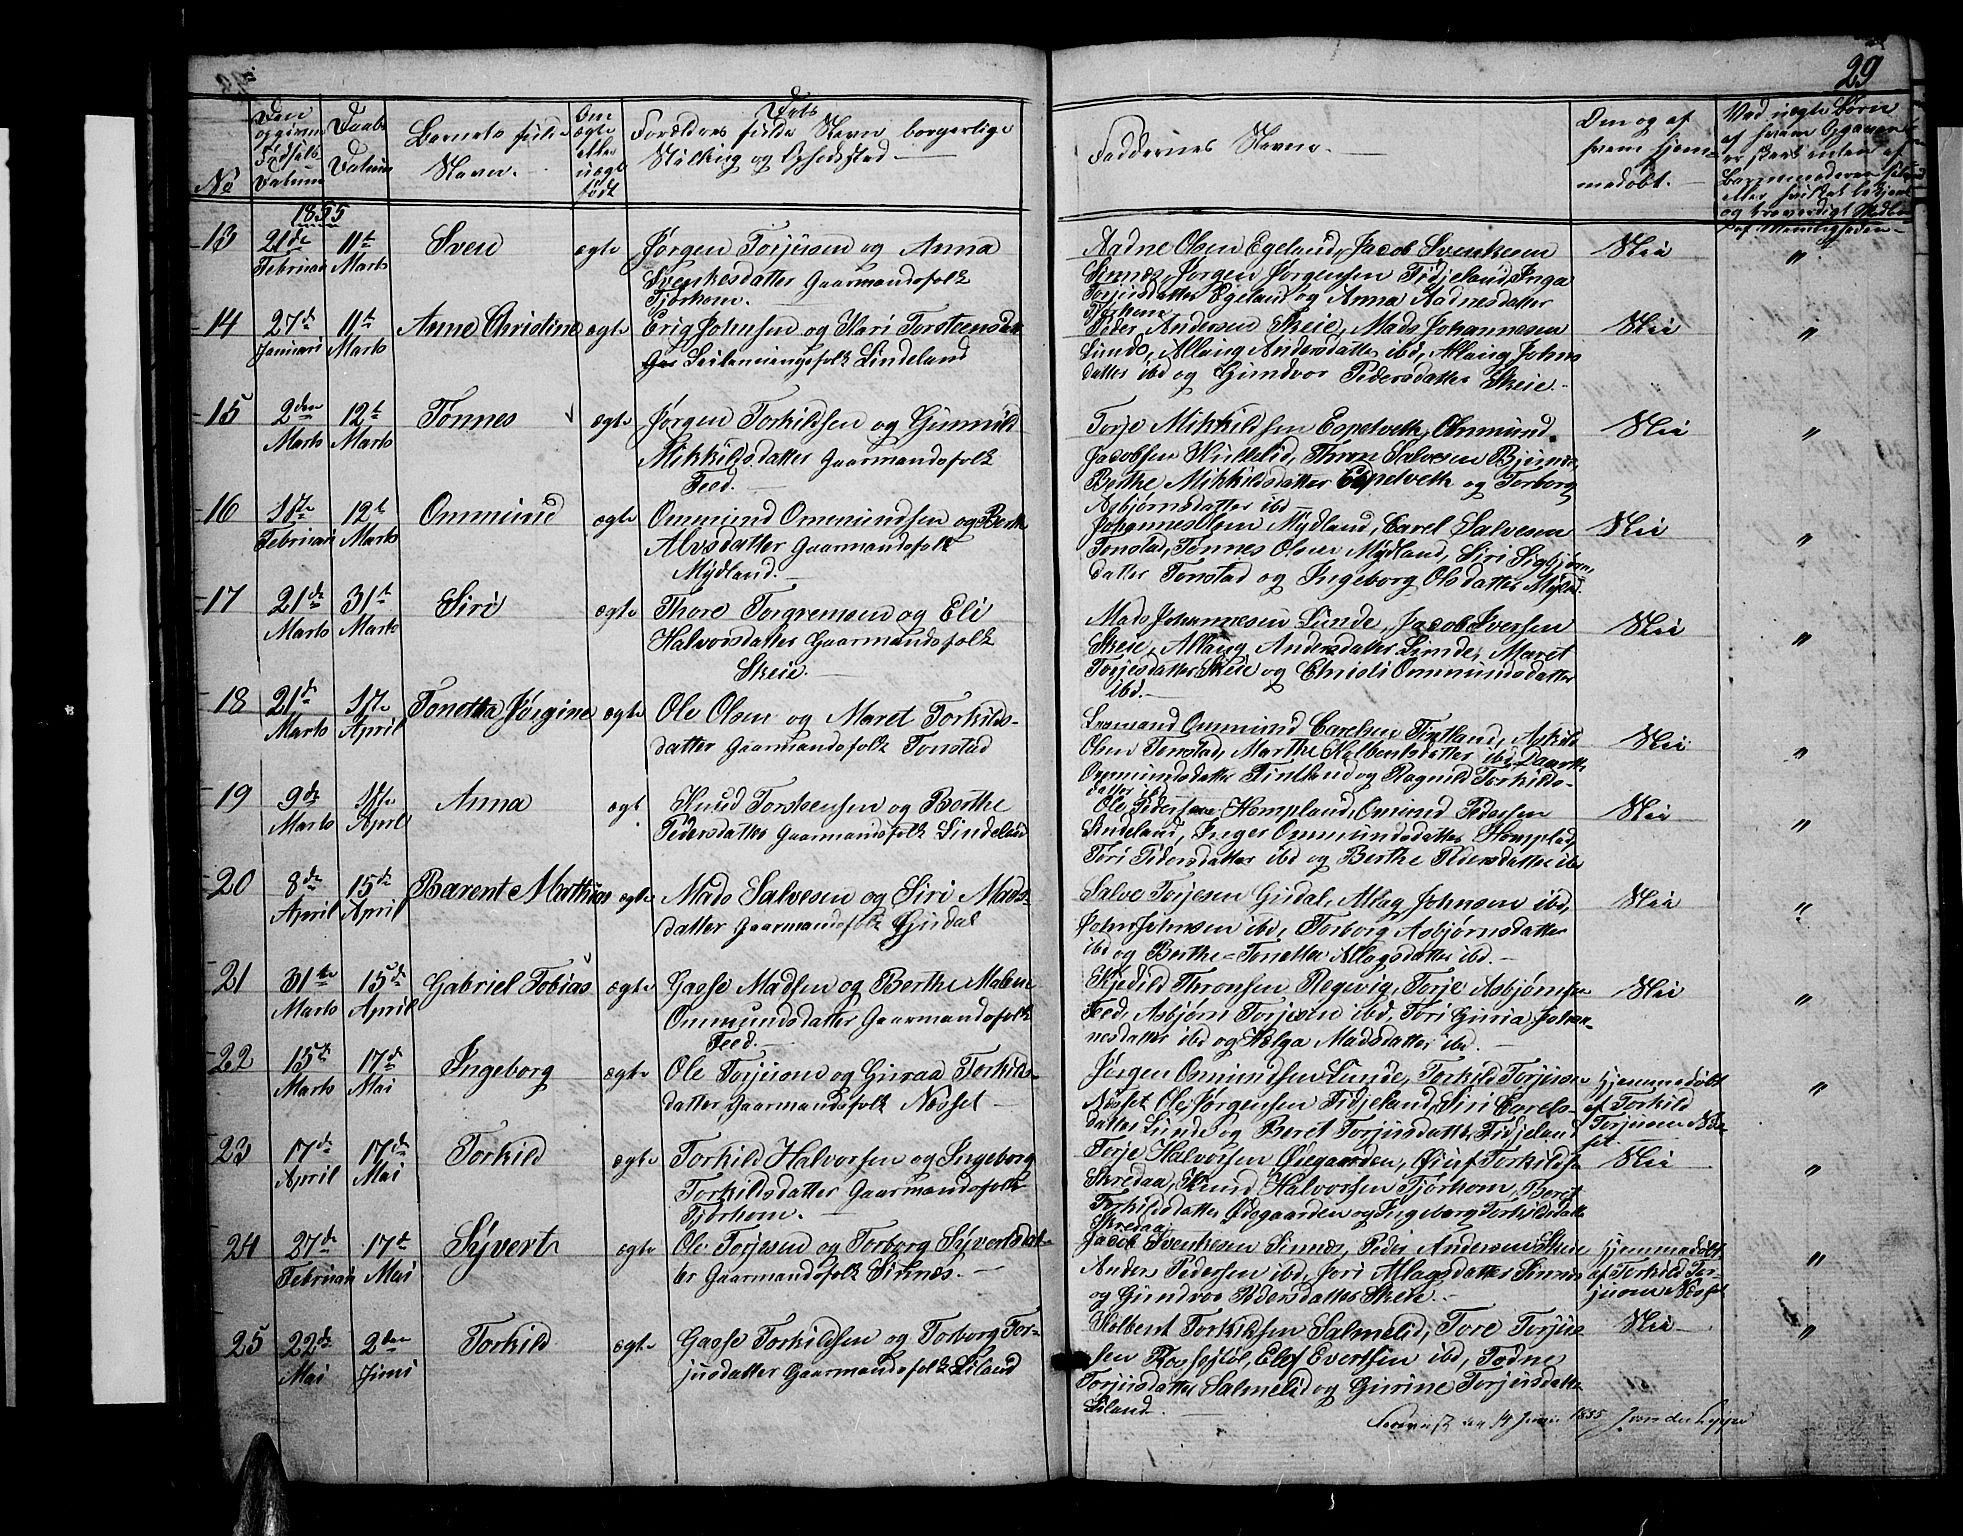 29
No
Den opgivne Fødsels Datum
Daabs Datum
Barnets fulde Navn.
Om ægte eller uægte født
Forældres fulde Navn borgerlige
Stilling og Opholdsted
Faddernes Navne.
Om og af hvem hjemmedøbt.
1855
13 21de Februar 11te Marts Sven ægte Jørgen Torjusen og Anna
Svenkesdatter Gaarmandsfolk
Tjørhom.
Aadne Olsen Egeland, Jacob Svenkesen
Sinnes, Jørgen Jørgensen Fidjeland, Inga
Torjusdatter Egeland og Anna Aadnesdatter
Tjørhom
Nei "
14 27de Januari 11te Marts Anne Christine ægte Erig Johnsen og Kari Torsteensdat
Lindeland
Peder Andersen Skeie, Mads Johannesen
Lunde, Allaug Andersdatter ibd, Allaug Johns
datter ibd og Gundvor Pedersdatter Skeie.
Nei "
15 2den Marts 12te Marts Tønnes ægte Jørgen Torkildsen og Gunnild
Mikkilsdatter Gaarmandsfolk
Feed.
Torje Mikkildsen Espetveth, Ommund
Jacobsen, Thron Salvesen
Berthe Mikkildsdatter Espetveth og Torborg
Asbjørnsdatter ibd
Nei "
16 Februari 12te Marts Ommund ægte Ommund Ommundsen og Berthe
Alvsdatter Gaarmandsfolk
Mydland.
Johannes Olsen Mydland, Carel Salvesen
Tonstad, Tønnes Olsen Mydland, Siri Sigbjørns
datter Tonstad og Ingeborg Olsdatter Mydld.
Nei "
17 21de Marts 31te Marts Siri ægte Thore Torgremsen og Eli
Halvorsdatter Gaarmandsfolk
Skeie.
Mads Johannesen Lunde, Jacob Iversen
Skeie, Allaug Andersdatter Lunde, Maret
Torjesdatter Skeie og Christi Ommundsdatter
ibd.
Nei "
18 21de Marts 1ste April Tonetta Jørgine ægte Ole Olsen og Maret Torkilds-
datter Gaarmandsfolk Tonstad
Ommund Carelsen Fintland, Askild
Olsen Tonstad, Marthe Kolbentsdatter ibd,
Ommundsdatter Fintland og Ragnild Torkilds-
datter ibd
Nei "
19 9de Marts 1ste April Anna ægt Knud Torsteensen og Berthe
Pedersdatter Gaarmandsfolk Lindeland
Ole Pedersen Hompland, Omund Pedersen
Lindeland, Inger Ommundsdatter Hompland,
Tori Pedersdatter ibd og Berthe Pedersdatter ibd
Nei "
20 8de April 15de April Barent Mathias ægte Mads Salvesen og Siri Mads-
datter Gaarmandsfolk Gjusdal
Salve Torjesen Gjusdal, Allag Johnsen ibd,
John Johnsen ibd, Torborg Asbjørnsdatter
ibd og Berthe=Tonette Allagsdatter ibd.
Nei "
21 31te Marts 15de April Gabriel Tobias ægte Gasse Madsen og Berthe Malene
Ommundsdatter Gaarmandsfolk
Feed.
Thronsen Regevig, Torje Asbjørnsen
Feed, Asbjørn Torjesen ibd, Tori Guria Johan-
nesdatter ibd og Helga Madsdatter ibd.
Nei "
22 15de Marts 17de Mai Ingeborg ægte Ole Torjusen og Guraa Torkilds-
datter Gaarmandsfolk Nesset
Jørgen Ommundsen Lunde, Torkild Torjusen
Nesset, Ole Jørgensen Fidjeland, Siri Carels-
datter Lunde og Beret Torjusdatter Fidjeland
hjemmedøbt
af Torkild
Torjusen Nes-
set "
23 17de April 17de Mai Torkild ægte Torkild Halvorsen og Ingeborg
Torkildsdatter Gaarmandsfolk
Tjørhom.
Torje Halvorsen Øiegaarden, Torkildsen
Skredaa, Knud Halvorsen Tjørhom, Beret
Torkildsdatter Ødegaarden og Ingeborg Torkildsdatter
Skredaa
Nei "
24 27de Februari 17de Mai Syvert ægte Ole Torjesen og Torborg Syvertsdat-
ter Gaarmandsfolk Sirknæs.
Jacob Svenkesen Sinnes, Peder Andersen Skeie
Anders Pedersen ibd, Jori Allagsdatter Sinnes
og Gundvor Pedersdatter Skeie.
hjemmedøbt
af Torkild Tor-
jusen Nesset "
25 22de Mai 2den Juni Torkild ægte Gasse Torkildsen og Torborg Tor-
jusdatter Gaarmandsfolk Liland
Kolbent Torkildsen Salmelid, Tore Torju-
sen Rossestøl, Elef Evertsen ibd, Tødne
Torjusdatter Salmelid og Gurine Torjusdatter
Liland
Nei "
14 Juni 1855